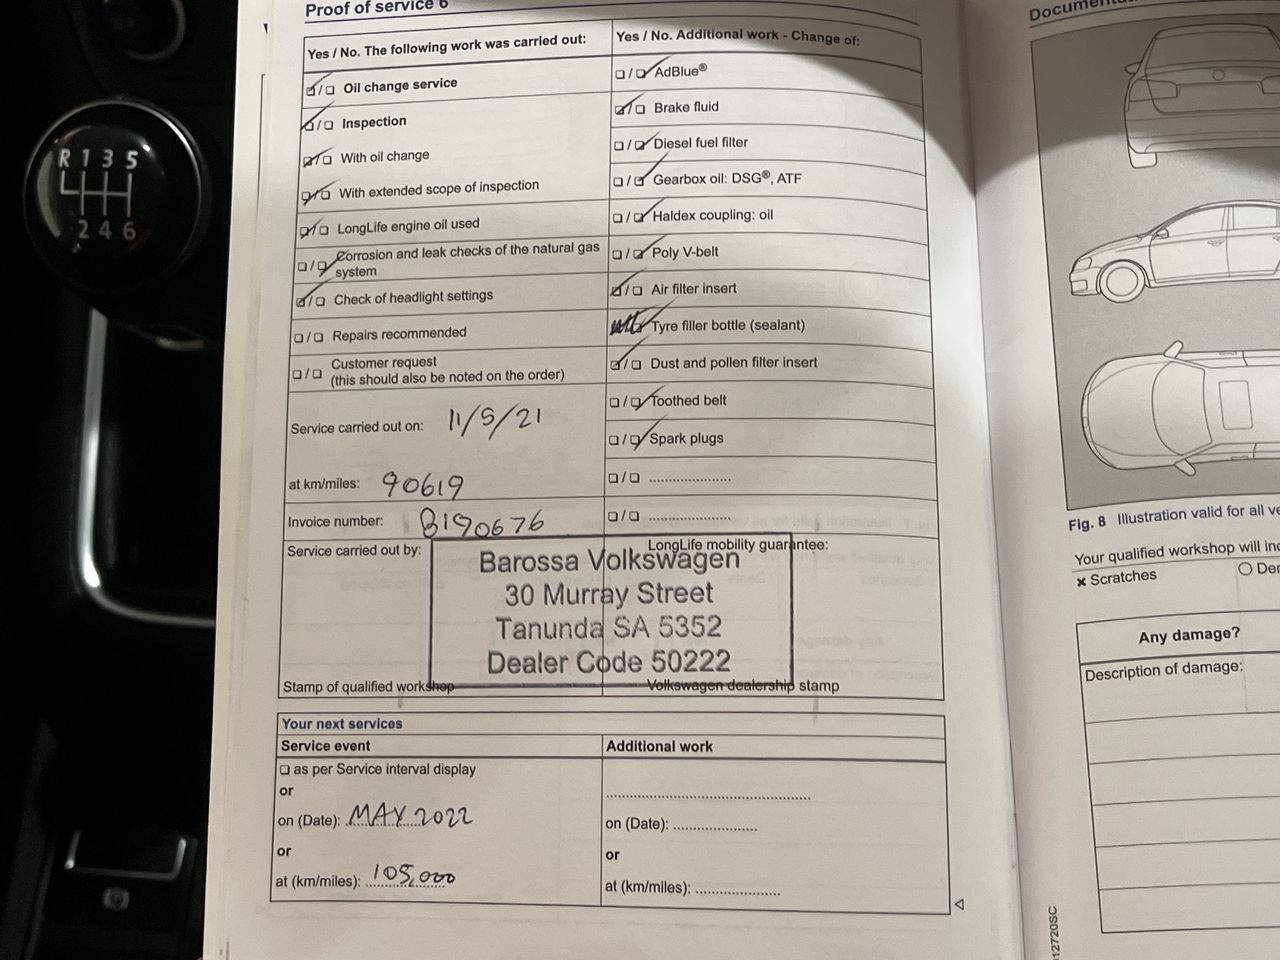 Proof of service 6
Yes / No. The following work was carried out:
Oil change service
Inspection
With oil change
With extended scope of inspection
LongLife engine oil used
Corrosion and leak checks of the natural gas
system
Check of headlight settings
Repairs recommended
Customer request
(this should also be noted on the order)
Service carried out on: 11/5/21
at km/miles: 90619
Invoice number: B190676
Service carried out by:
Stamp of qualified workshop
Yes / No. Additional work - Change of:
AdBlue®
Brake fluid
Diesel fuel filter
Gearbox oil: DSG®, ATF
Haldex coupling: oil
Poly V-belt
Air filter insert
Tyre filler bottle (sealant)
Dust and pollen filter insert
Toothed belt
Spark plugs
LongLife mobility guarantee:
Barossa Volkswagen
30 Murray Street
Tanunda SA 5352
Dealer Code 50222
Volkswagen dealership stamp
Your next services
Service event
as per Service interval display
or
on (Date): MAY 2022
or
at (km/miles): 105,000
Additional work
on (Date):
or
at (km/miles):
Fig. 8 Illustration valid for all
Your qualified workshop will
× Scratches
Any damage?
Description of damage:
12720SC
R 1 3 5
2 4 6